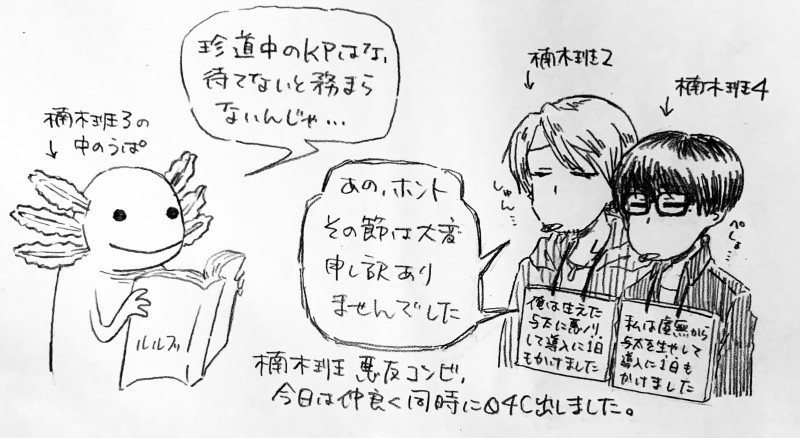 珍道中のKPはな、
待てないと務まら
ないんじゃ…
楠木班3の
中のうぱ
ルルブ
楠木班2
楠木班4
しゅん…
ぺしょ…
あの、ホント
その節は大変
申し訳あり
ませんでした
俺は生えた
与太に悪ノリ
して導入に1日
もかけました
私は虚無から
与太を生やして
導入に1日も
かけました
楠木班 悪友コンビ、
今日は仲良く同時に04C出しました。